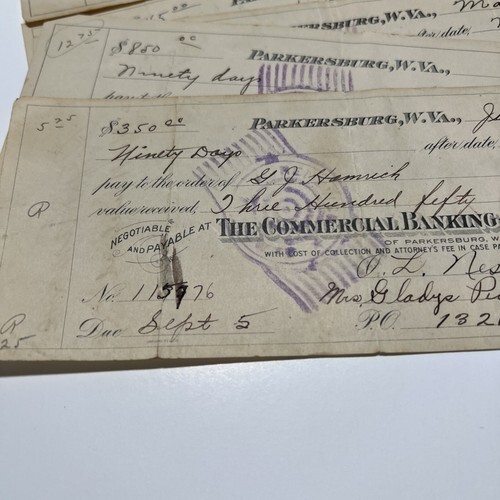 Ma
PARKERSBURG, W.VA.,
after date,
12 75
$850 00
PARKERSBURG, W.VA.,
Ninety days
5 25
$350 00
PARKERSBURG, W.VA.,
Ninety Days
after date,
pay to the order of G J Hamrich
R
value received, Three Hundred fifty
NEGOTIABLE AND PAYABLE AT THE COMMERCIAL BANKING
OF PARKERSBURG, W
WITH COST OF COLLECTION AND ATTORNEY'S FEE IN CASE PA
O. L. Nes
No. 115976
Mrs. Gladys
Due Sept 5
P.O. 132
R
25